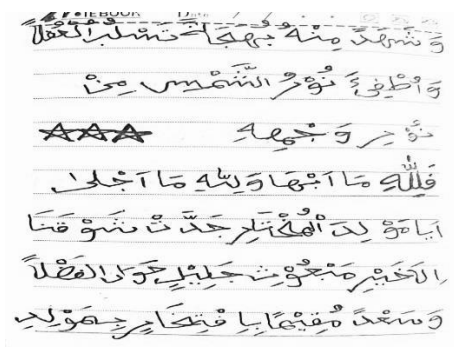 NOTEBOOK
وَ شَهِدَ مِنْهُ بُهْجَةً تَسْلُبُ الْعُقْلَا
وَ اُطْفِئَ نُوْرُ الشَّمْسِ مِنْ
نُوْرِ وَجْهِهِ
فَلِلّٰهِ مَا اَبْهَا وَلِلّٰهِ مَا اَجْلٰى
اَيَا مَوْلِدَ الْمُخْتَارِ جَدَّدْتَ شَوْقَنَا
مَبْعُوْثٍ جَلِيْلٍ حَوَى الْفَضْلَا
وَسَعْدٌ مُقِيْمًا بِافْتِخَارٍ بِمَوْلِدِ